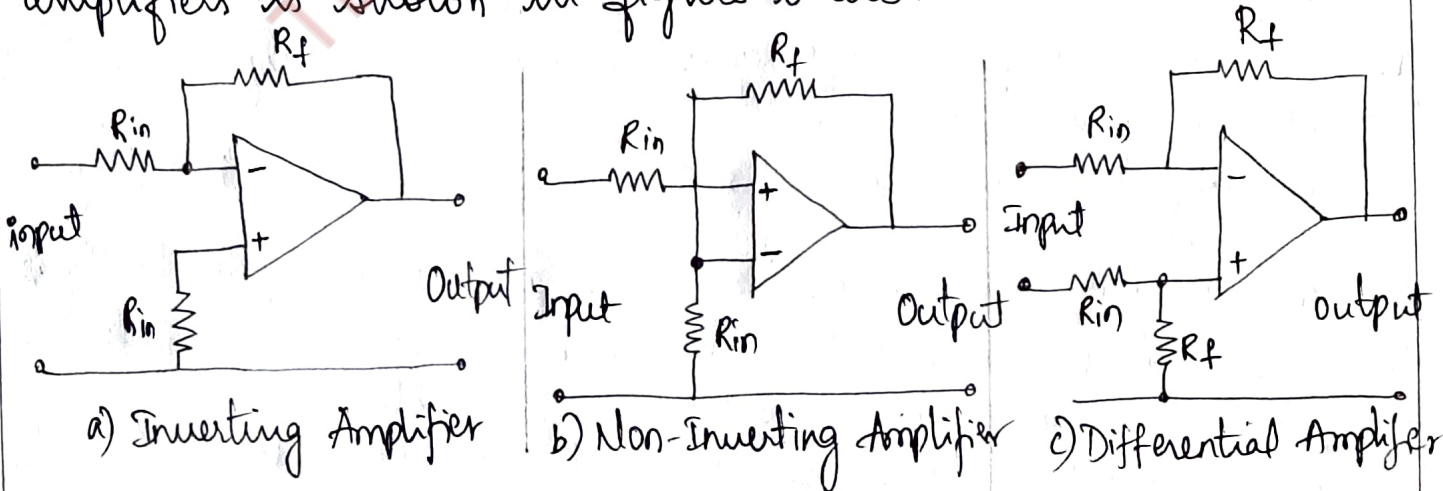 amplifiers is shown in figure
Rf
Rin
−
+
input
Rin
Output
a) Inverting Amplifier
Rf
Rin
+
−
Input
Rin
Output
b) Non-Inverting Amplifier
Rf
Rin
−
Input
+
Rin
Rf
output
c) Differential Amplifer